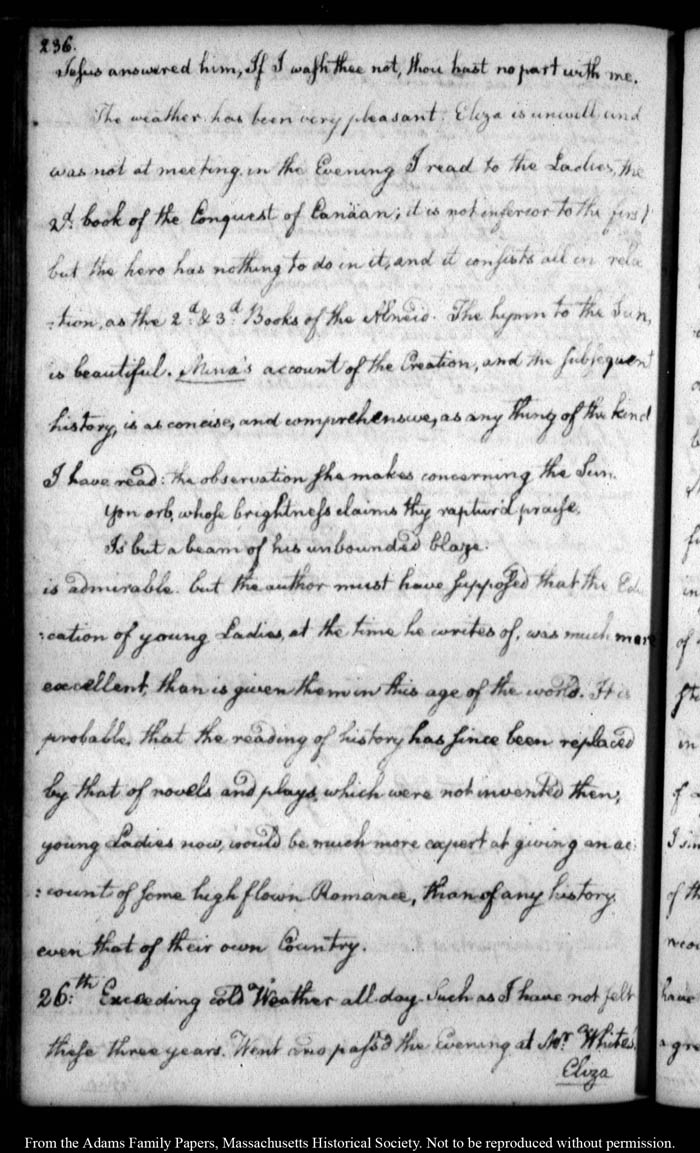 236.
Jesus answered him, If I wash thee not, thou hast no part with me.
The weather has been very pleasant. Eliza is unwell, and
was not at meeting. in the Evening I read to the Ladies, the
2d. book of the Conquest of Canäan; it is not inferior to the first
but the hero has nothing to do in it, and it consists all in rela
:tion, as the 2d. & 3d. Books of the Æneid. The hymn to the Sun,
is beautiful. Mina's account of the Creation, and the subsequent
history, is as concise, and comprehensive, as any thing of the kind
I have read: the observation she makes concerning the Sun.
Yon orb, whose brightness claims thy raptur'd praise,
Is but a beam of his unbounded blaze.
is admirable. but the author must have supposed that the Edu
:cation of young Ladies, at the time he writes of, was much more
excellent, than is given them in this age of the world. It is
probable, that the reading of history has since been replaced
by that of novels and plays, which were not invented then,
young Ladies now, would be much more expert at giving an ac:
:count of some high flown Romance, than of any history,
even that of their own Country.
26:th Exceeding cold Weather all day. Such as I have not felt
these three years. Went and pass'd the Evening at Mr. White's.
Eliza
From the Adams Family Papers, Massachusetts Historical Society. Not to be reproduced without permission.